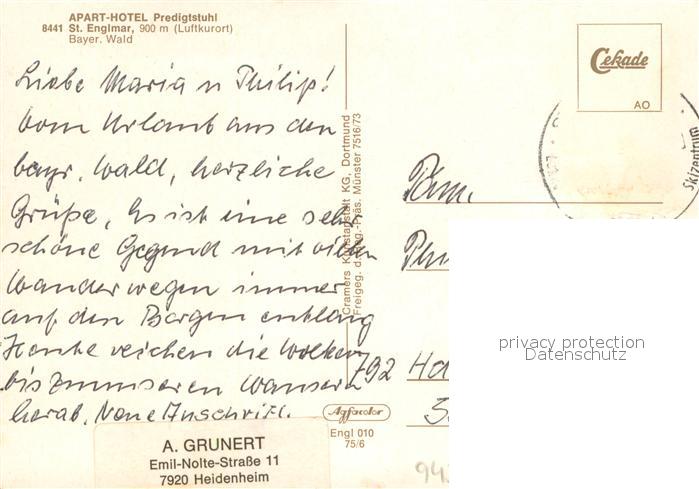 APART-HOTEL Predigtstuhl
8441 St. Englmar, 900 m (Luftkurort)
Bayer. Wald
Liebe Maria u Philip!
Vom Urlaub aus den
bayr. Wald, herzliche
Grüße, Es ist eine sehr
schöne Gegend mit vielen
Wanderwegen immer
auf den Bergen entlang
Heute reichen die Wolken
bis zu unseren
herab. Neue Anschrift.
A. GRUNERT
Emil-Nolte-Straße 11
7920 Heidenheim
Cramers Kunstanstalt KG, Dortmund
Freigeg. d. Reg.-Präs. Münster 7516/73
Agfacolor
Engl 010
75/6
Cekade
AO
Skizentrum
Fam.
792
privacy protection
Datenschutz